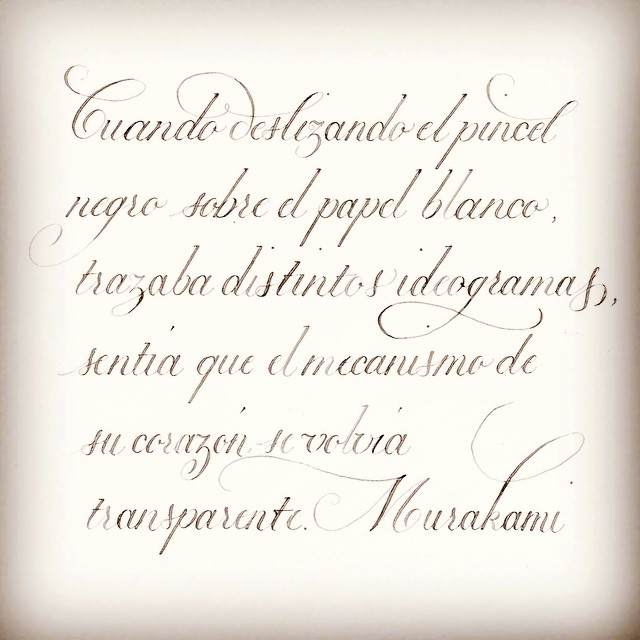 Cuando deslizando el pincel
negro sobre el papel blanco,
trazaba distintos ideogramas,
sentía que el mecanismo de
su corazón se volvía
transparente. Murakami